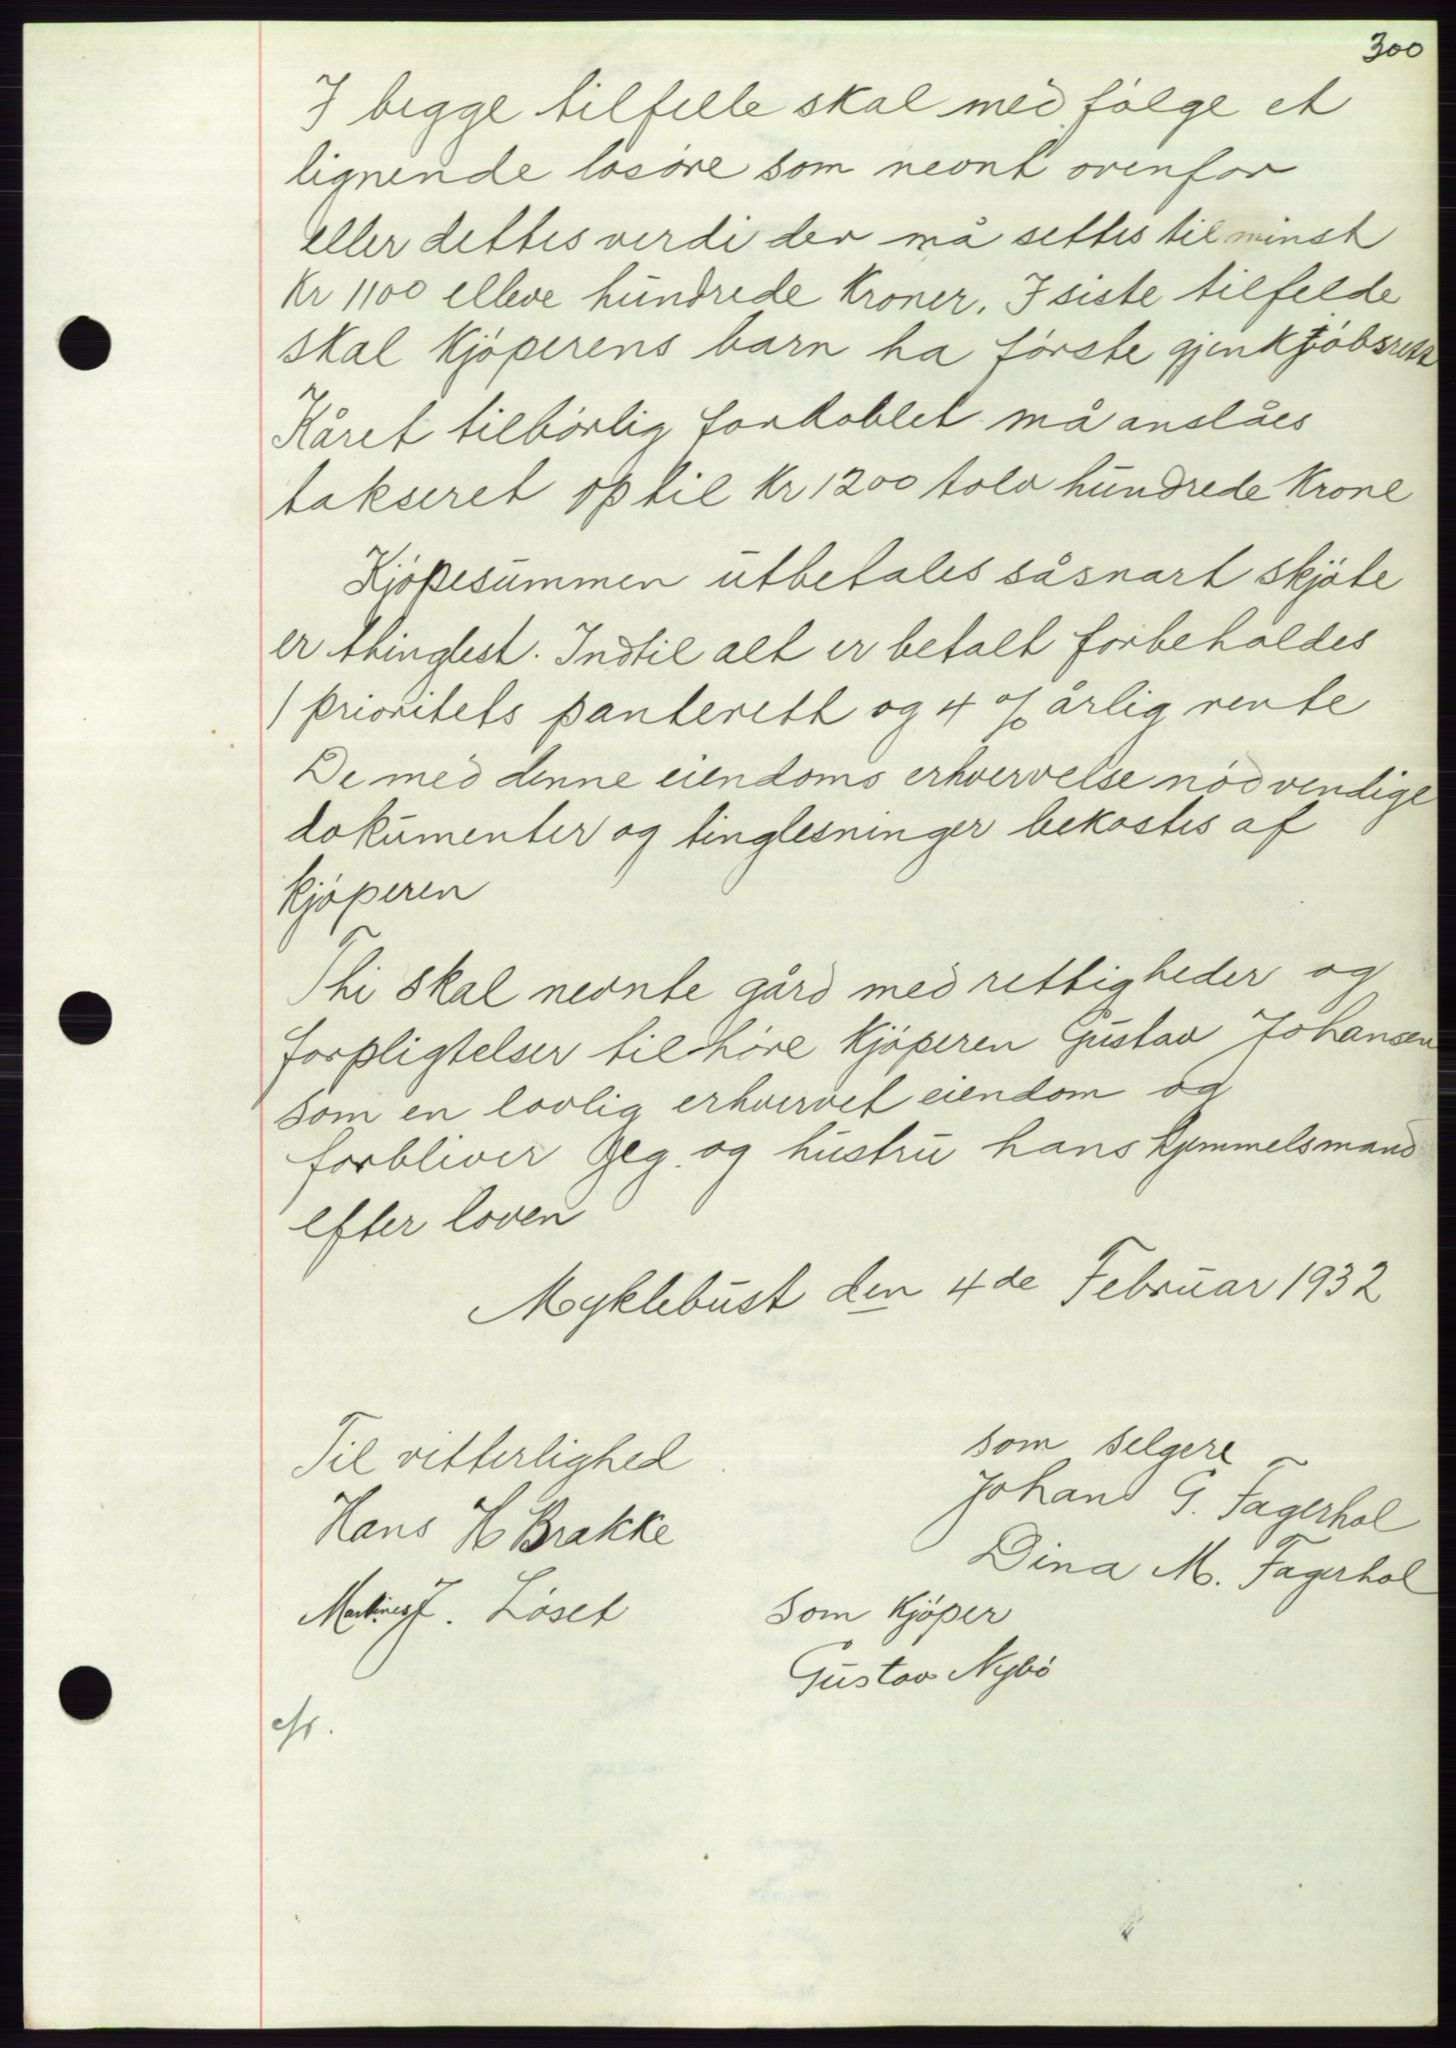 300
I begge tilfelle skal med følge et
lignende løsøre som nevnt ovenfor
eller dettes verdi der må settes til minst
Kr 1100 elleve hundrede Kroner. I siste tilfelde
skal Kjøperens barn ha første gjenkjøbsrett
Kåret tilbørlig fordoblet må anslåes
takseret op til Kr 1200 tolv hundrede Krone
Kjøpesummen utbetales såsnart skjøte
er thinglest. Indtil alt er betalt forbeholdes
1 prioritets panterett og 4 % årlig rente
De med denne eiendoms erhvervelse nødvendige
dokumenter og tinglesninger bekostes af
kjøperen
Thi skal nevnte gård med rettigheder og
forpligtelser tilhøre Kjøperen Gustav Johansen
som en lovlig erhvervet eiendom og
forbliver Jeg og hustru hans hjemmelsmand
efter loven
Myklebust den 4de Februar 1932
Til vitterlighed
Hans H Brakke
Martines J. Løset
som selgere
Johan G. Fagerhol
Dina M. Fagerhol
Som Kjøper
Gustav Nybø